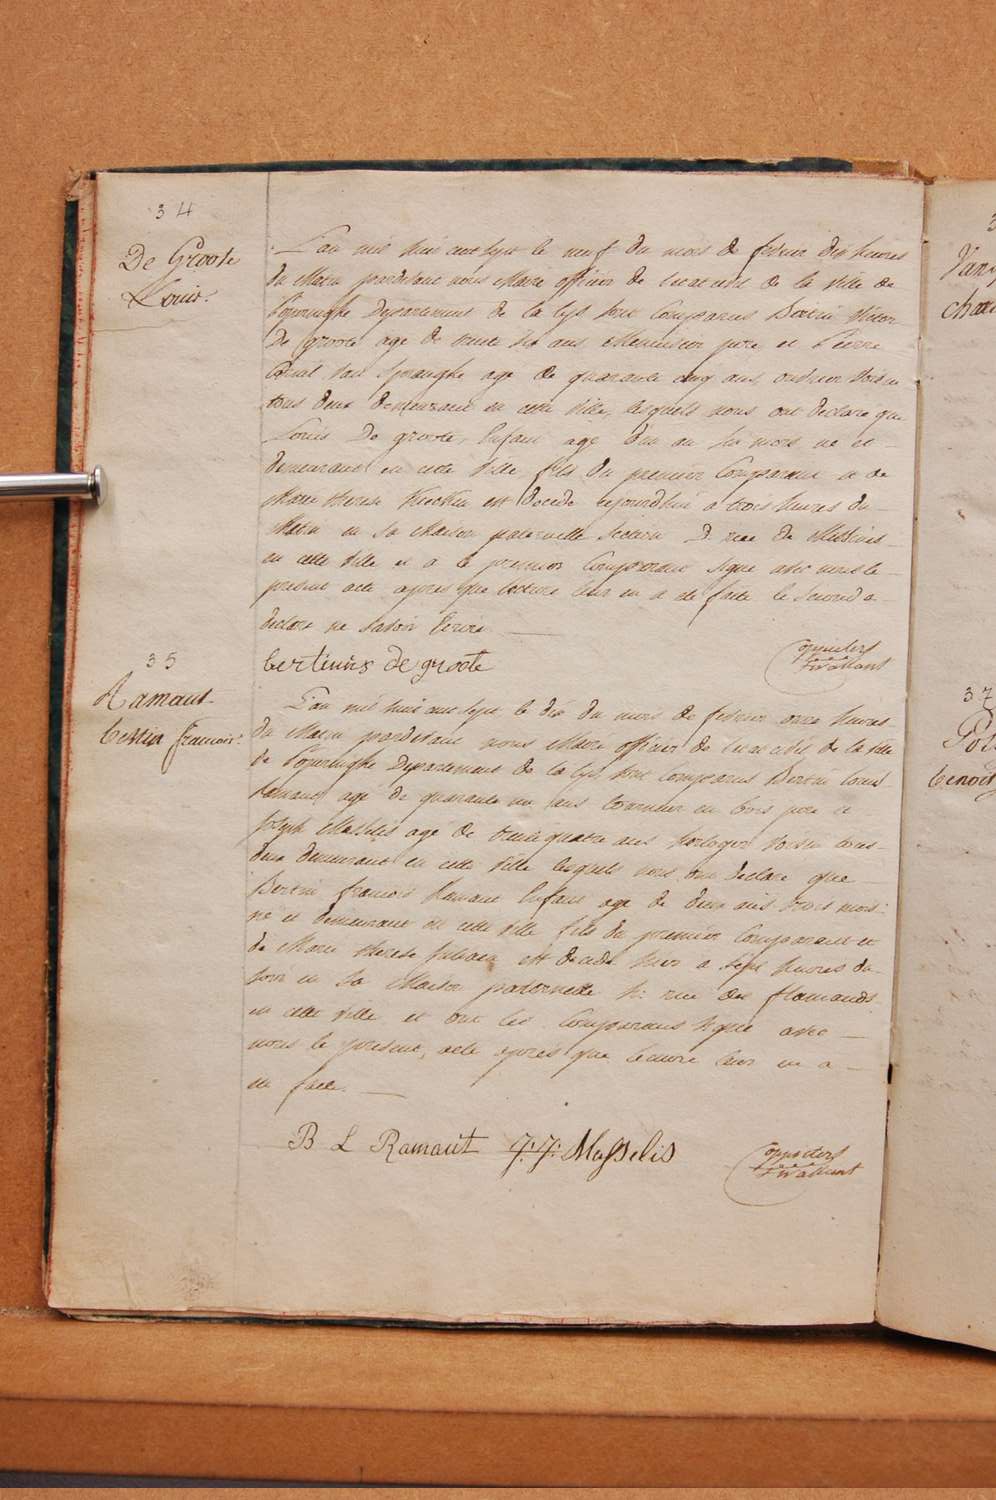 34
De Groote
Louis.
L'an mil huit cent sept le neuf du mois de fevrier dix heures
du Matin pardevant nous Maire officier de l'etat civil de la ville de
Poperinghe Departement de la Lys sont Comparus Bertin
De groote age de trente six ans pere et Pierre
age de quarante cinq ans, voisin
tous deux demeurant en cette ville, lesquels nous ont declaré que
Louis De groote, Enfant agé d'un an six mois né et
demeurant en cette ville fils du premier Comparant et de
Marie therese est decede aujourdhui a trois heures du
Matin en sa Maison paternelle Section D. rue de
en cette ville et a le premier Comparant signe avec nous le
present acte apres que lecture leur en a eté faite le second a
declaré ne savoir Ecrire
bertinus de groote
35
Ramaut
bertin francois
L'an mil huit cent sept le dix du mois de fevrier onze heures
du Matin pardevant nous Maire officier de l'etat civil de la ville
de Poperinghe Departement de la Lys sont Comparus Bertin Louis
Ramaut agé de quarante un ans tourneur en bois pere et
Joseph Masselis agé de trente quatre ans horloger voisin tous
deux demeurant en cette ville lesquels nous ont declaré que
Bertin francois Ramaut Enfant age de deux ans trois mois
né et demeurant en cette ville fils du premier Comparant et
de Marie therese est decede hier a sept heures du
soir en sa Maison paternelle rue des flamands
en cette ville et ont les Comparans signe avec
nous le present acte après que lecture leur en a
eté faite.
B L Ramaut J: J: Masselis